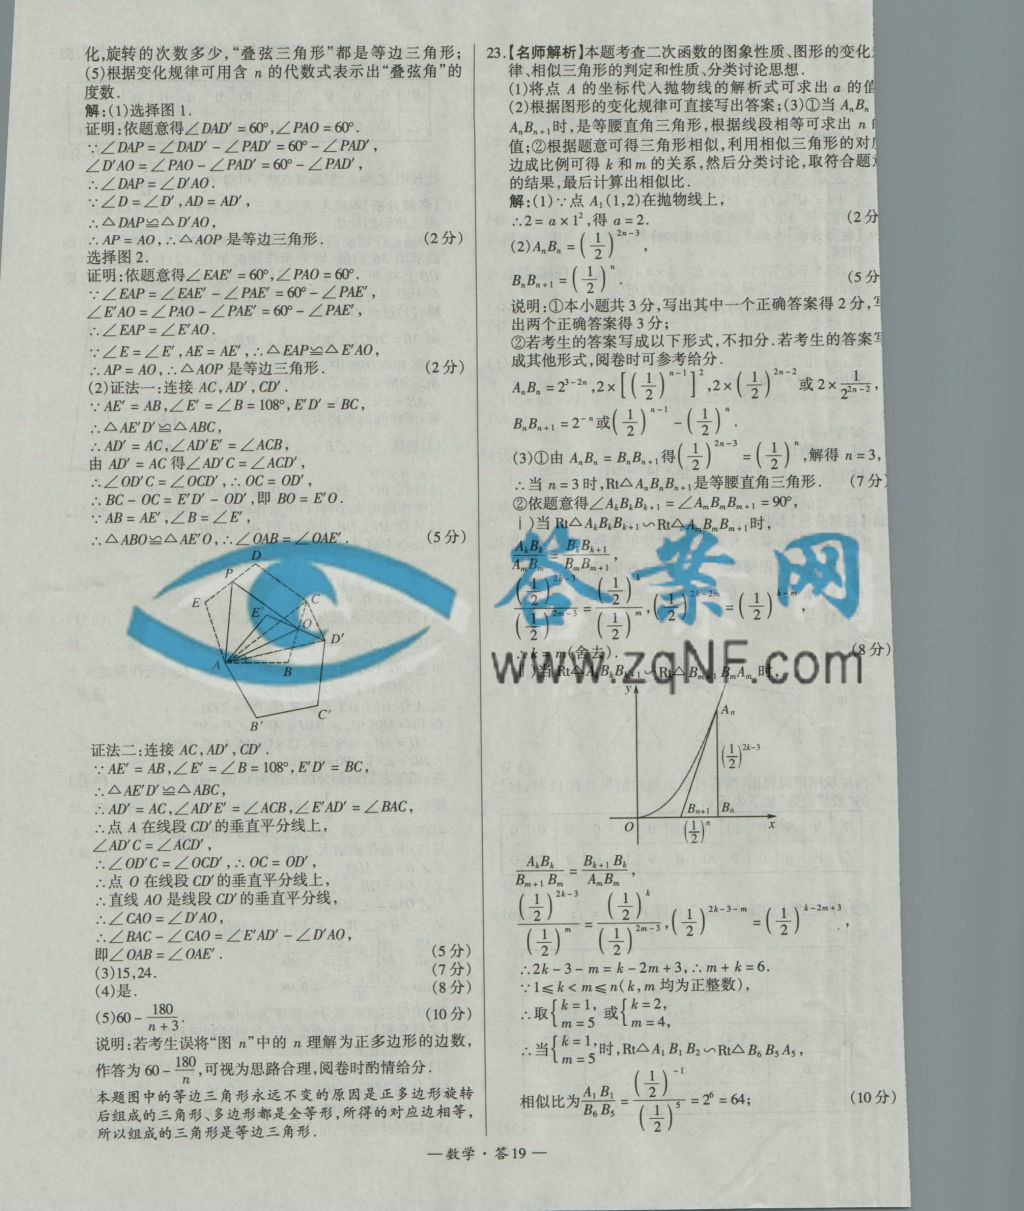 化,旋转的次数多少,“叠弦三角形”都是等边三角形;
(5)根据变化规律可用含 n 的代数式表示出“叠弦角”的
度数.
解:(1)选择图1.
证明:依题意得∠DAD′=60°,∠PAO=60°.
∵∠DAP=∠DAD′-∠PAD′=60°-∠PAD′,
∠D′AO=∠PAO-∠PAD′=60°-∠PAD′,
∴∠DAP=∠D′AO.
∵∠D=∠D′,AD=AD′,
∴△DAP≌△D′AO,
∴AP=AO,∴△AOP是等边三角形. (2分)
选择图2.
证明:依题意得∠EAE′=60°,∠PAO=60°.
∵∠EAP=∠EAE′-∠PAE′=60°-∠PAE′,
∠E′AO=∠PAO-∠PAE′=60°-∠PAE′,
∴∠EAP=∠E′AO.
∵∠E=∠E′,AE=AE′,∴△EAP≌△E′AO,
∴AP=AO,∴△AOP是等边三角形. (2分)
(2)证法一:连接AC,AD′,CD′.
∵AE′=AB,∠E′=∠B=108°,E′D′=BC,
∴△AE′D′≌△ABC,
∴AD′=AC,∠AD′E′=∠ACB,
由AD′=AC得∠AD′C=∠ACD′,
∴∠OD′C=∠OCD′,∴OC=OD′,
∴BC-OC=E′D′-OD′,即BO=E′O.
∵AB=AE′,∠B=∠E′,
∴△ABO≌△AE′O,∴∠OAB=∠OAE′. (5分)
D
P
E
E′
C
O
D′
A
B
B′
C′
证法二:连接AC,AD′,CD′.
∵AE′=AB,∠E′=∠B=108°,E′D′=BC,
∴△AE′D′≌△ABC,
∴AD′=AC,∠AD′E′=∠ACB,∠E′AD′=∠BAC,
∴点A在线段CD′的垂直平分线上,
∠AD′C=∠ACD′,
∴∠OD′C=∠OCD′,∴OC=OD′,
∴点O在线段CD′的垂直平分线上,
∴直线AO是线段CD′的垂直平分线,
∴∠CAO=∠D′AO,
∴∠BAC-∠CAO=∠E′AD′-∠D′AO,
即∠OAB=∠OAE′. (5分)
(3)15,24. (7分)
(4)是. (8分)
(5)60-180/(n+3). (10分)
说明:若考生误将“图n”中的n理解为正多边形的边数,
作答为60-180/n,可视为思路合理,阅卷时酌情给分.
本题图中的等边三角形永远不变的原因是正多边形旋转
后组成的三角形、多边形都是全等形,所得的对应边相等,
所以组成的三角形是等边三角形.
23.【名师解析】本题考查二次函数的图象性质、图形的变化
律、相似三角形的判定和性质、分类讨论思想.
(1)将点A的坐标代入抛物线的解析式可求出a的值
(2)根据图形的变化规律可直接写出答案;(3)①当AₙBₙ
AₙBₙ₊₁时,是等腰直角三角形,根据线段相等可求出n
值;②根据题意可得三角形相似,利用相似三角形的对
边成比例可得k和m的关系,然后分类讨论,取符合题
的结果,最后计算出相似比.
解:(1)∵点A₁(1,2)在抛物线上,
∴2=a×1²,得a=2. (2分
(2)AₙBₙ=(1/2)^(2n-3),
BₙBₙ₊₁=(1/2)^n. (5分
说明:①本小题共3分,写出其中一个正确答案得2分,写
出两个正确答案得3分;
②若考生的答案写成以下形式,不扣分.若考生的答案写
成其他形式,阅卷时可参考给分.
AₙBₙ=2^(3-2n),2×[(1/2)^(n-1)]²,2×(1/2)^(2n-2)或2×1/2^(2n-2),
BₙBₙ₊₁=2^(-n)或(1/2)^(n-1)-(1/2)^n.
(3)①由AₙBₙ=BₙBₙ₊₁得(1/2)^(2n-3)=(1/2)^n,解得n=3,
∴当n=3时,Rt△AₙBₙBₙ₊₁是等腰直角三角形. (7分)
②依题意得∠AₖBₖBₖ₊₁=∠AₘBₘBₘ₊₁=90°,
ⅰ)当Rt△AₖBₖBₖ₊₁∽Rt△AₘBₘBₘ₊₁时,
AₖBₖ/AₘBₘ=BₖBₖ₊₁/BₘBₘ₊₁,
(1/2)^(2k-3)/(1/2)^(2m-3)=(1/2)^k/(1/2)^m,(1/2)^(2k-2m)=(1/2)^(k-m),
∴k=m(舍去). (8分)
ⅱ)当Rt△AₖBₖBₖ₊₁∽Rt△Bₘ₊₁BₘAₘ时,
y
Aₙ
(1/2)^(2k-3)
Bₙ₊₁ Bₙ
O (1/2)^n x
AₖBₖ/Bₘ₊₁Bₘ=Bₖ₊₁Bₖ/AₘBₘ,
(1/2)^(2k-3)/(1/2)^m=(1/2)^k/(1/2)^(2m-3),(1/2)^(2k-3-m)=(1/2)^(k-2m+3),
∴2k-3-m=k-2m+3,∴m+k=6.
∵1≤k<m≤n(k,m均为正整数),
∴取{k=1, m=5 或{k=2, m=4,
∴当{k=1, m=5时,Rt△A₁B₁B₂∽Rt△B₆B₅A₅,
相似比为A₁B₁/B₆B₅=(1/2)^(-1)/(1/2)^5=2⁶=64; (10分)
—数学·答19—
答案网
www.zqNF.com